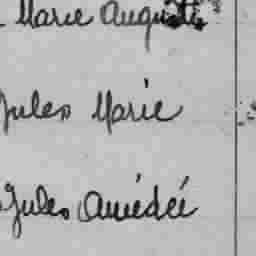 Marie Auguste
Jules Marie
Jules Amédée